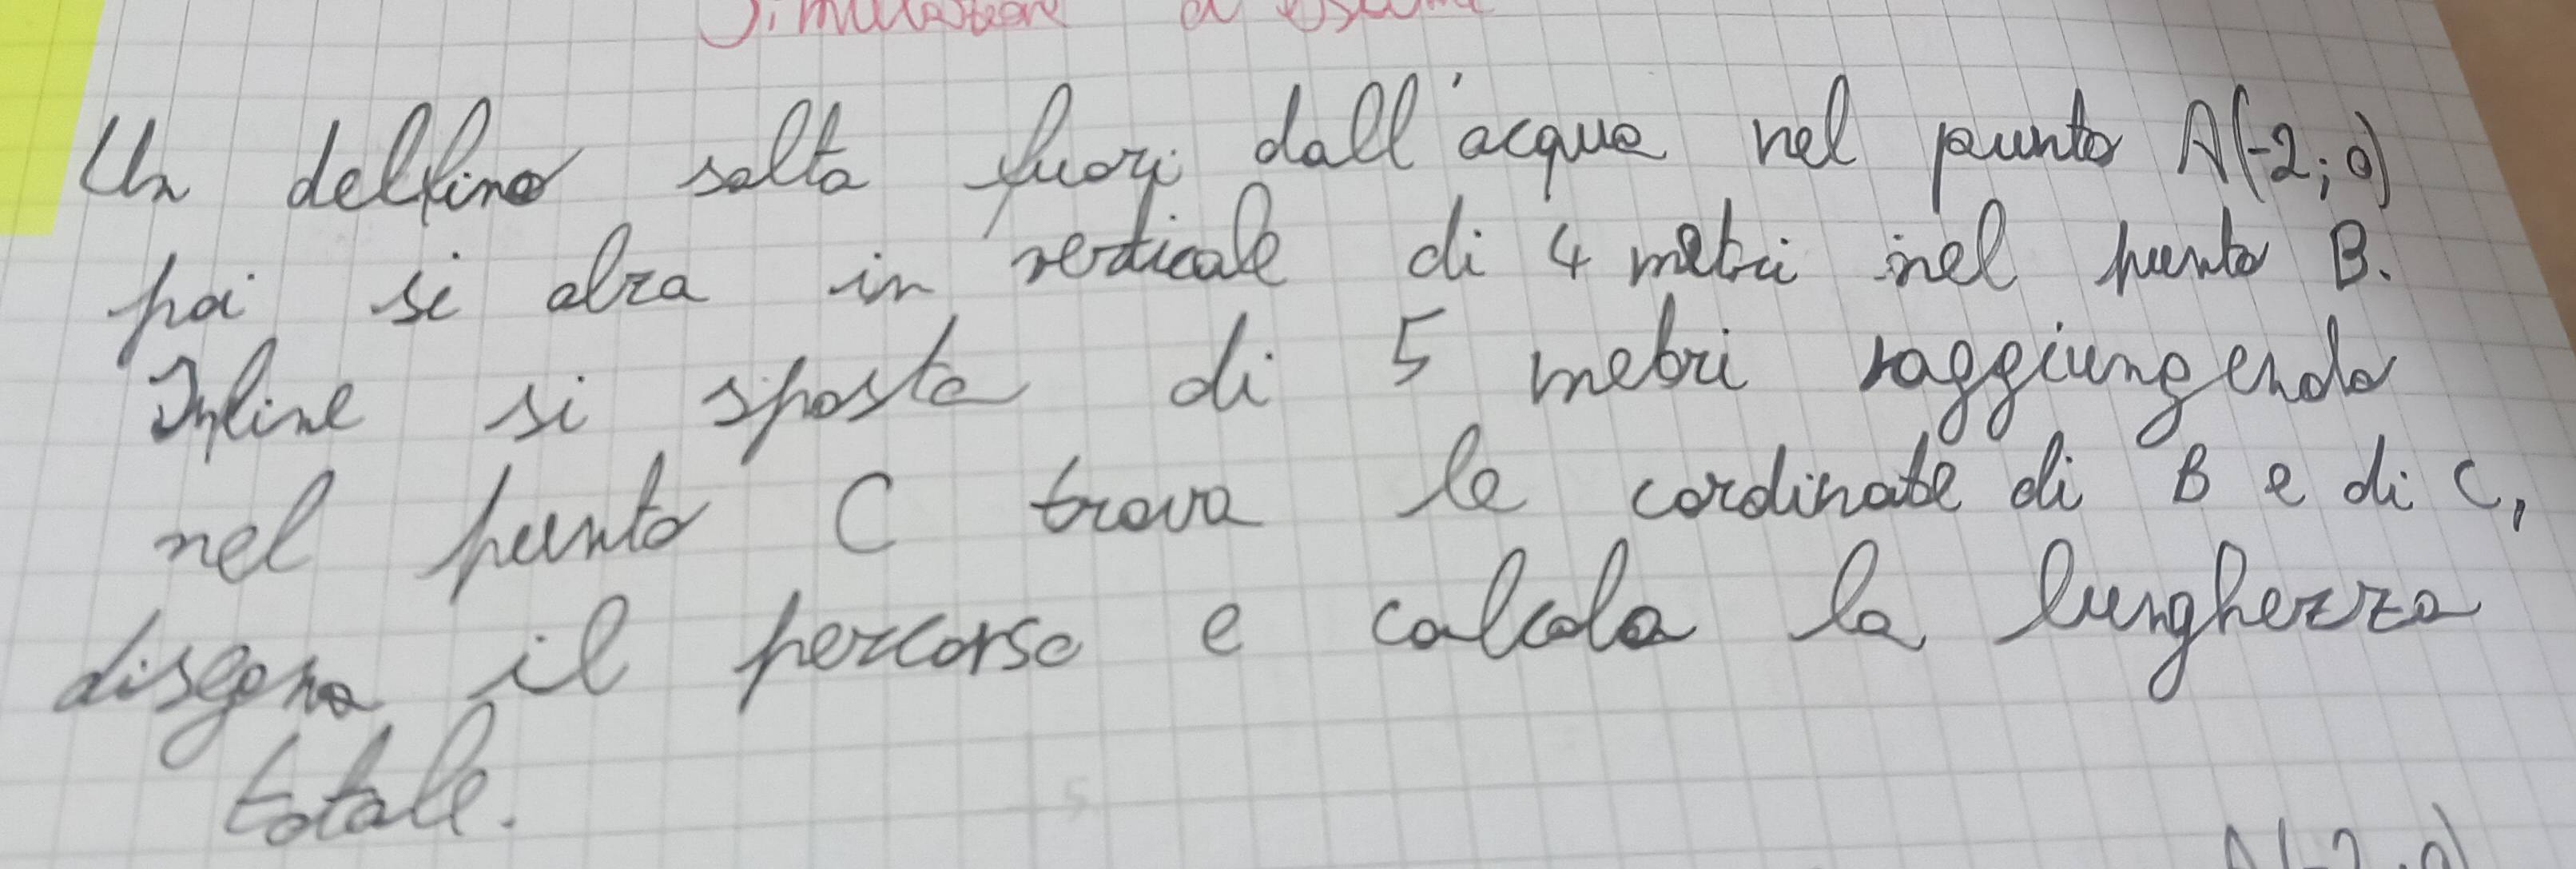 Simulazione di esame
Un delfino salta fuori dall'acqua nel punto A(-2; 0)
poi si alza in verticale di 4 metri nel punto B.
Infine si sposta di 5 metri raggiungendo
nel punto C trova le cordinate di B e di C,
disegna il percorso e calcola la lunghezza
totale.
A(-2; 0)